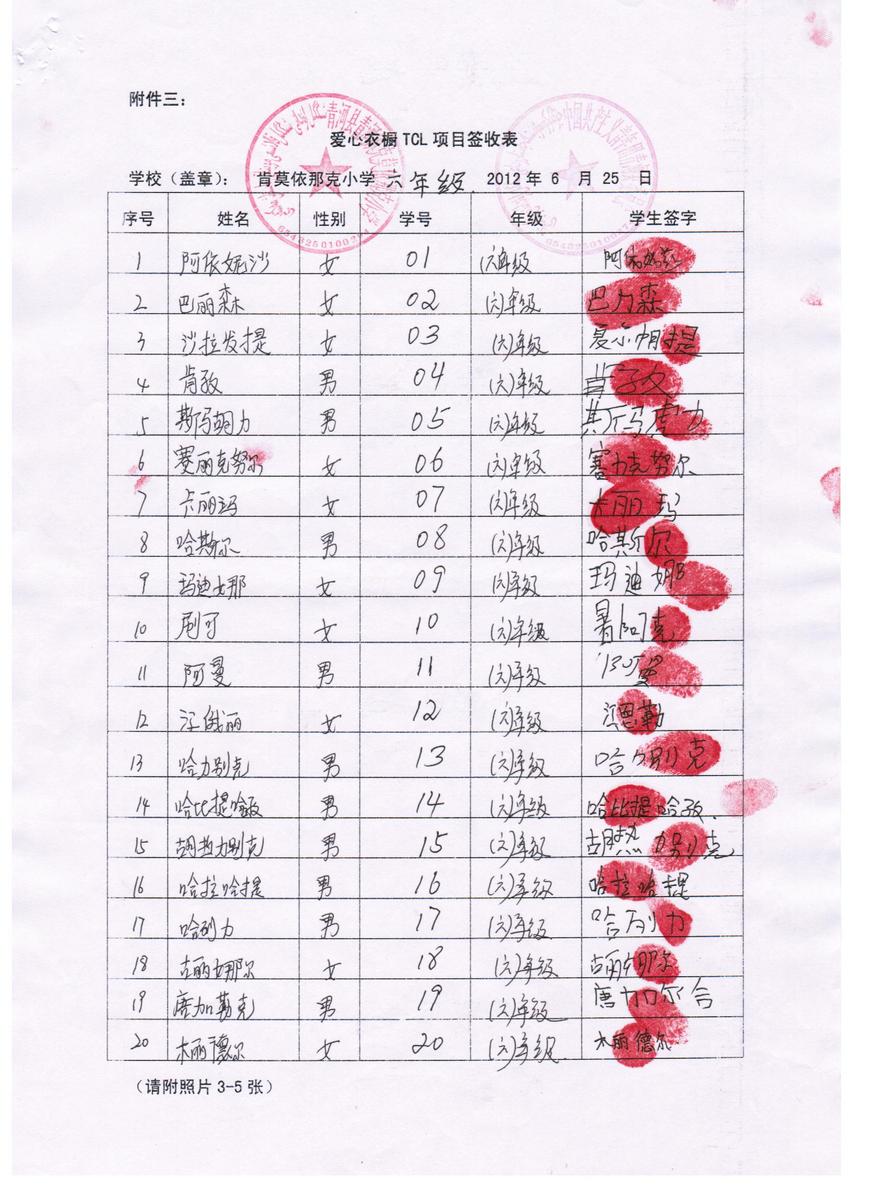 附件三：
爱心衣橱 TCL 项目签收表
学校（盖章）： 肯莫依那克小学 六年级. 2012 年 6 月 25 日
序号 姓名 性别 学号 年级 学生签字
1 阿依妮沙 女 01 (六)年级 阿依
2 巴丽森 女 02 (六)年级 巴力森
3 沙拉发提 女 03 (六)年级 提
4 肯孜 男 04 (六)年级 肯孜
5 斯玛胡力 男 05 (六)年级 斯马
6 赛丽克努尔 女 06 (六)年级 赛力克努尔
7 卡丽玛 女 07 (六)年级 卡丽玛
8 哈斯尔 男 08 (六)年级 哈斯尔
9 玛迪娜 女 09 (六)年级 玛迪娜
10 女 10 (六)年级
11 阿曼 男 11 (六)年级 阿曼
12 女 12 (六)年级
13 哈力别克 男 13 (六)年级 哈力别克
14 哈比提哈孜 男 14 (六)年级 哈比提哈孜.
15 胡热力别克 男 15 (六)年级 胡热力别克
16 哈拉哈提 男 16 (六)年级 哈拉哈提
17 哈列力 男 17 (六)年级 哈列力
18 古丽娜尔 女 18 (六)年级 古丽娜尔
19 唐加勒克 男 19 (六)年级 唐加尔合
20 木丽德尔 女 20 (六)年级 木丽德尔
（请附照片 3-5 张）